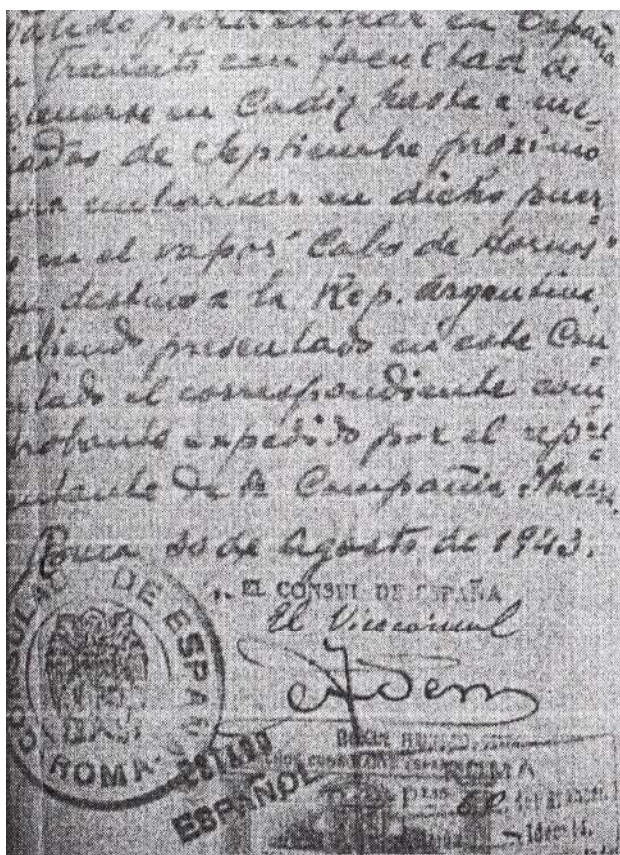 válido para entrar en España
en Transito con facultad de
detenerse en Cadiz hasta a me-
iados de Septiembre próximo
para embarcar en dicho puer-
o en el vapor "Cabo de Hornos"
con destino a la Rep. Argentina,
abiendo presentado en este Con-
ulado el correspondiente com-
robante expedido por el repre-
entante de la Compañia
Roma 30 de Agosto de 1943.
EL CONSUL DE ESPAÑA
El Vicecónsul
CONSULADO DE ESPAÑA
ROMA
ESTADO
ESPAÑOL
ROMA